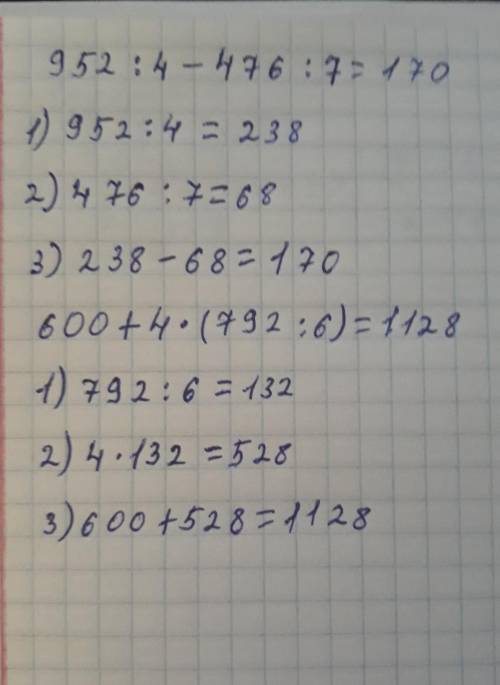 952 : 4 - 476 : 7 = 170
1) 952 : 4 = 238
2) 476 : 7 = 68
3) 238 - 68 = 170
600 + 4 · (792 : 6) = 1128
1) 792 : 6 = 132
2) 4 · 132 = 528
3) 600 + 528 = 1128